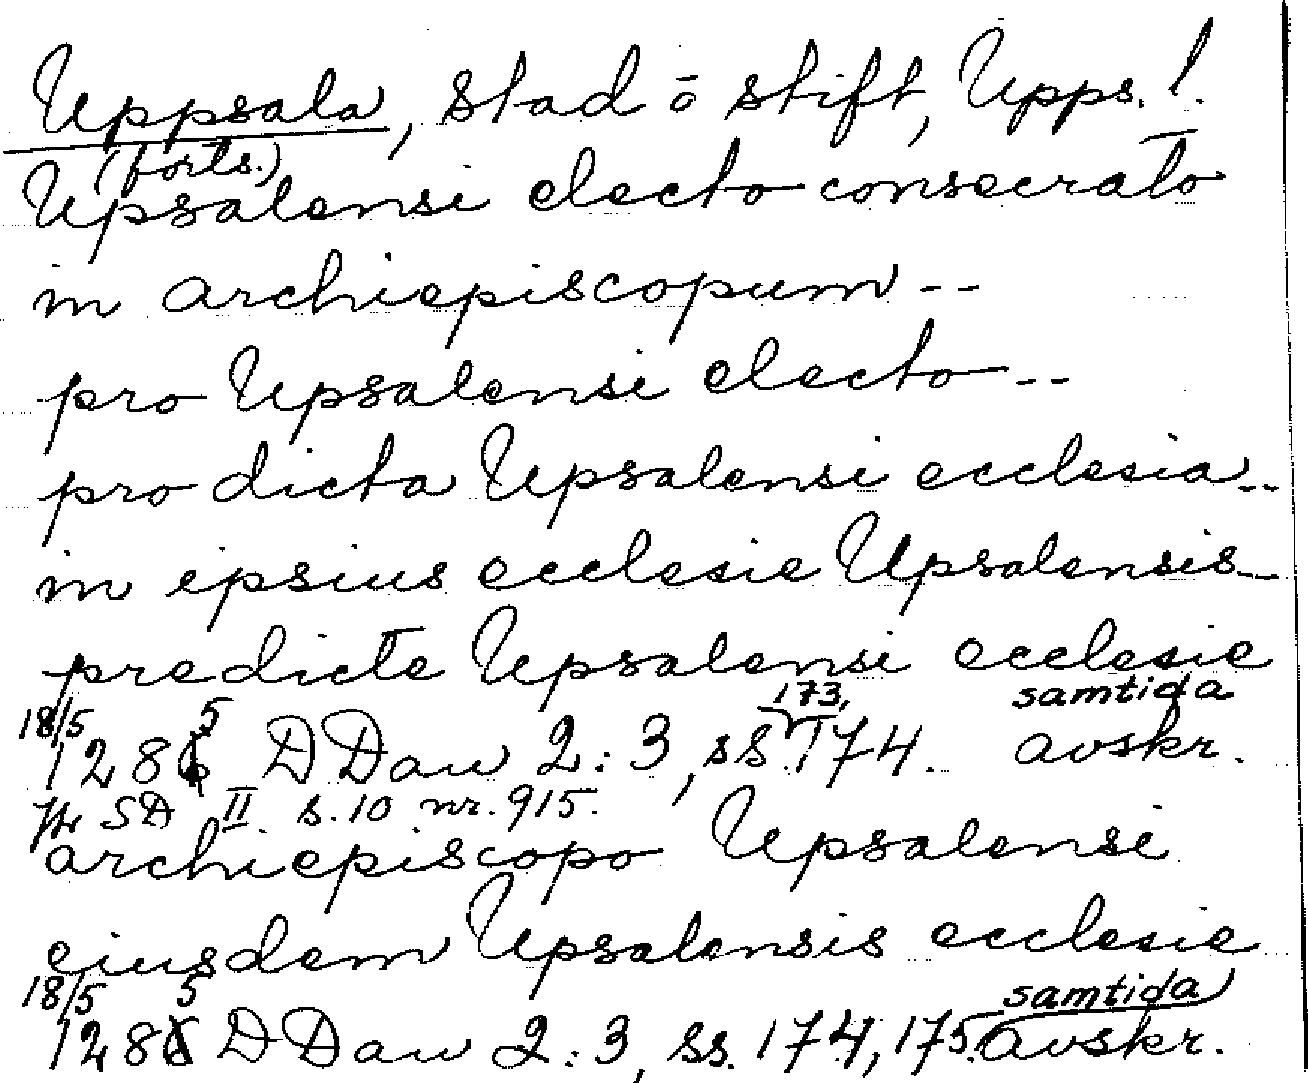 Uppsala, stad o stift, Upps. l.
(forts.)
Upsalensi electo consecrato
in archiepiscopum --
pro Upsalensi electo --
pro dicta Upsalensi ecclesia --
in epsius ecclesie Upsalensis -
predicte Upsalensi ecclesie
18/5 1285 DDan 2:3, ss. 173, 174. samtida avskr.
Jfr SD II s. 10 nr. 915.
archiepiscopo Upsalensi
eiusdem Upsalensis ecclesie
18/5 1285 DDan 2:3, ss. 174, 175. samtida avskr.